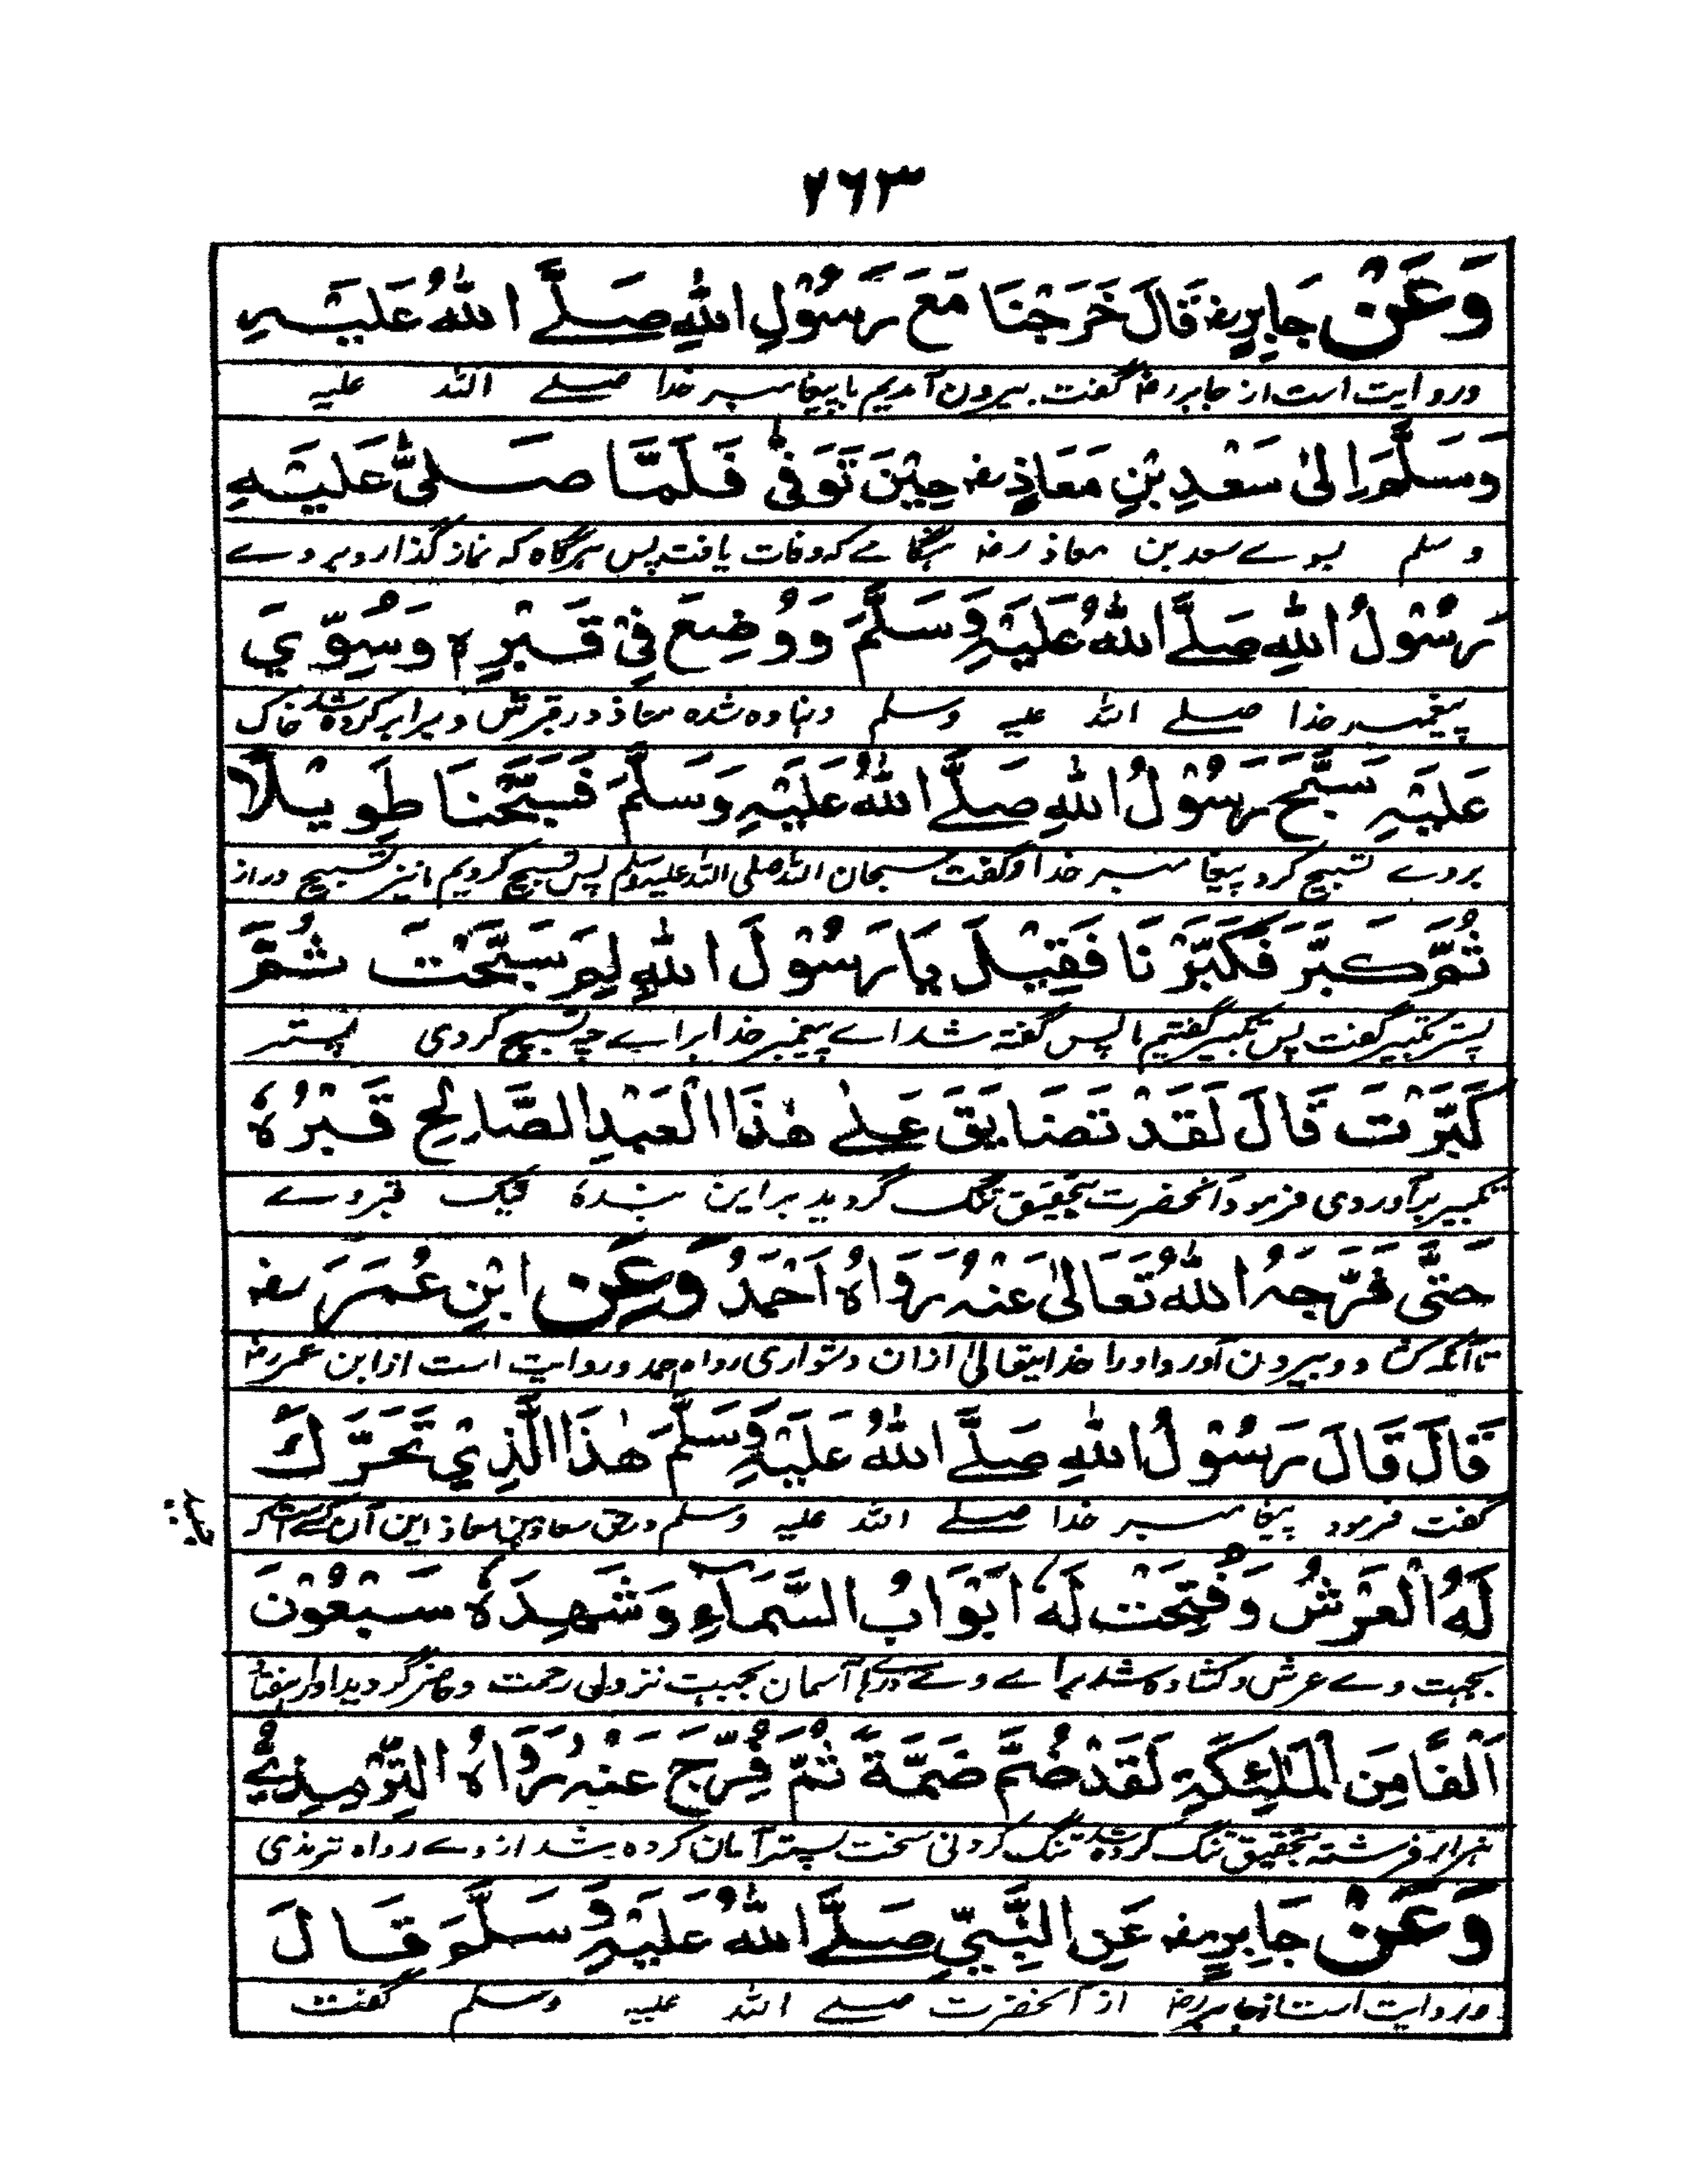 ۲۶۳
وَعَنْ جَابِرٍ رضہ قَالَ خَرَجْنَا مَعَ رَسُوْلِ اللّٰهِ صَلَّے اللّٰهُ عَلَيْهِ
وروایت است از جابر رضہ گفت بیرون آمدیم با پیغامبر خدا صلے اللہ علیہ
وَسَلَّمَ اِلٰى سَعْدِ بْنِ مَعَاذٍ رضہ حِيْنَ تُوَفّٰى فَلَمَّا صَلّٰى عَلَيْهِ
و سلم بسوے سعد بن معاذ رضہ ہنگامے کہ وفات یافت پس ہرگاہ کہ نماز گذارد بر وے
رَسُوْلُ اللّٰهِ صَلَّے اللّٰهُ عَلَيْهِ وَسَلَّمَ وَوُضِعَ فِيْ قَبْرِهٖ وَسُوِّيَ
پیغمبر خدا صلے اللہ علیہ وسلم و نہادہ شدہ معاذ در قبرش و برابر کردہ شد خاک
عَلَيْهِ سَبَّحَ رَسُوْلُ اللّٰهِ صَلَّے اللّٰهُ عَلَيْهِ وَسَلَّمَ فَسَبَّحْنَا طَوِيْلًا
بروے تسبیح کرد پیغامبر خدا و گفت سبحان اللہ صلی اللہ علیہ وسلم پس تسبیح کردیم ما نیز تسبیح دراز
ثُمَّ كَبَّرَ فَكَبَّرْنَا فَقِيْلَ يَا رَسُوْلَ اللّٰهِ لِمَ سَبَّحْتَ ثُمَّ
پستر تکبیر گفت پس تکبیر گفتیم ما پس گفتہ شد اے پیغمبر خدا براے چہ تسبیح کردی پستر
كَبَّرْتَ قَالَ لَقَدْ تَضَايَقَ عَلٰے هٰذَا الْعَبْدِ الصَّالِحِ قَبْرُهٗ
تکبیر برآوردی فرمود آنحضرت بتحقیق تنگ گردید بر این بندہ نیک قبر وے
حَتّٰى فَرَّجَهُ اللّٰهُ تَعَالٰى عَنْهُ رَوَاهُ اَحْمَدُ وَعَنِ ابْنِ عُمَرَ رضہ
تا آنکہ کشاد و بیرون آورد او را خدایتعالیٰ از ان دشواری رواہ احمد و روایت است از ابن عمر رضہ
قَالَ قَالَ رَسُوْلُ اللّٰهِ صَلَّے اللّٰهُ عَلَيْهِ وَسَلَّمَ هٰذَا الَّذِيْ تَحَرَّكَ
گفت فرمود پیغامبر خدا صلے اللہ علیہ وسلم در حق سعد بن معاذ این آن کسے است کہ
لَهُ الْعَرْشُ وَفُتِحَتْ لَهٗ اَبْوَابُ السَّمَآءِ وَشَهِدَهٗ سَبْعُوْنَ
بجہت وے عرش و کشادہ شد براے وے درہا آسمان بجہت نزول رحمت و حاضر گردید او را ہفتاد
اَلْفًا مِنَ الْمَلٰئِكَةِ لَقَدْ ضُمَّ ضَمَّةً ثُمَّ فُرِّجَ عَنْهُ رَوَاهُ التِّرْمِذِيُّ
ہزار از فرشتہ بتحقیق تنگ کردہ شد تنگ کردنی سخت پستر آسان کردہ شد از وے رواہ ترمذی
وَعَنْ جَابِرٍ رضہ عَنِ النَّبِيِّ صَلَّے اللّٰهُ عَلَيْهِ وَسَلَّمَ قَالَ
وروایت است از جابر رضہ از آنحضرت صلے اللہ علیہ وسلم گفت